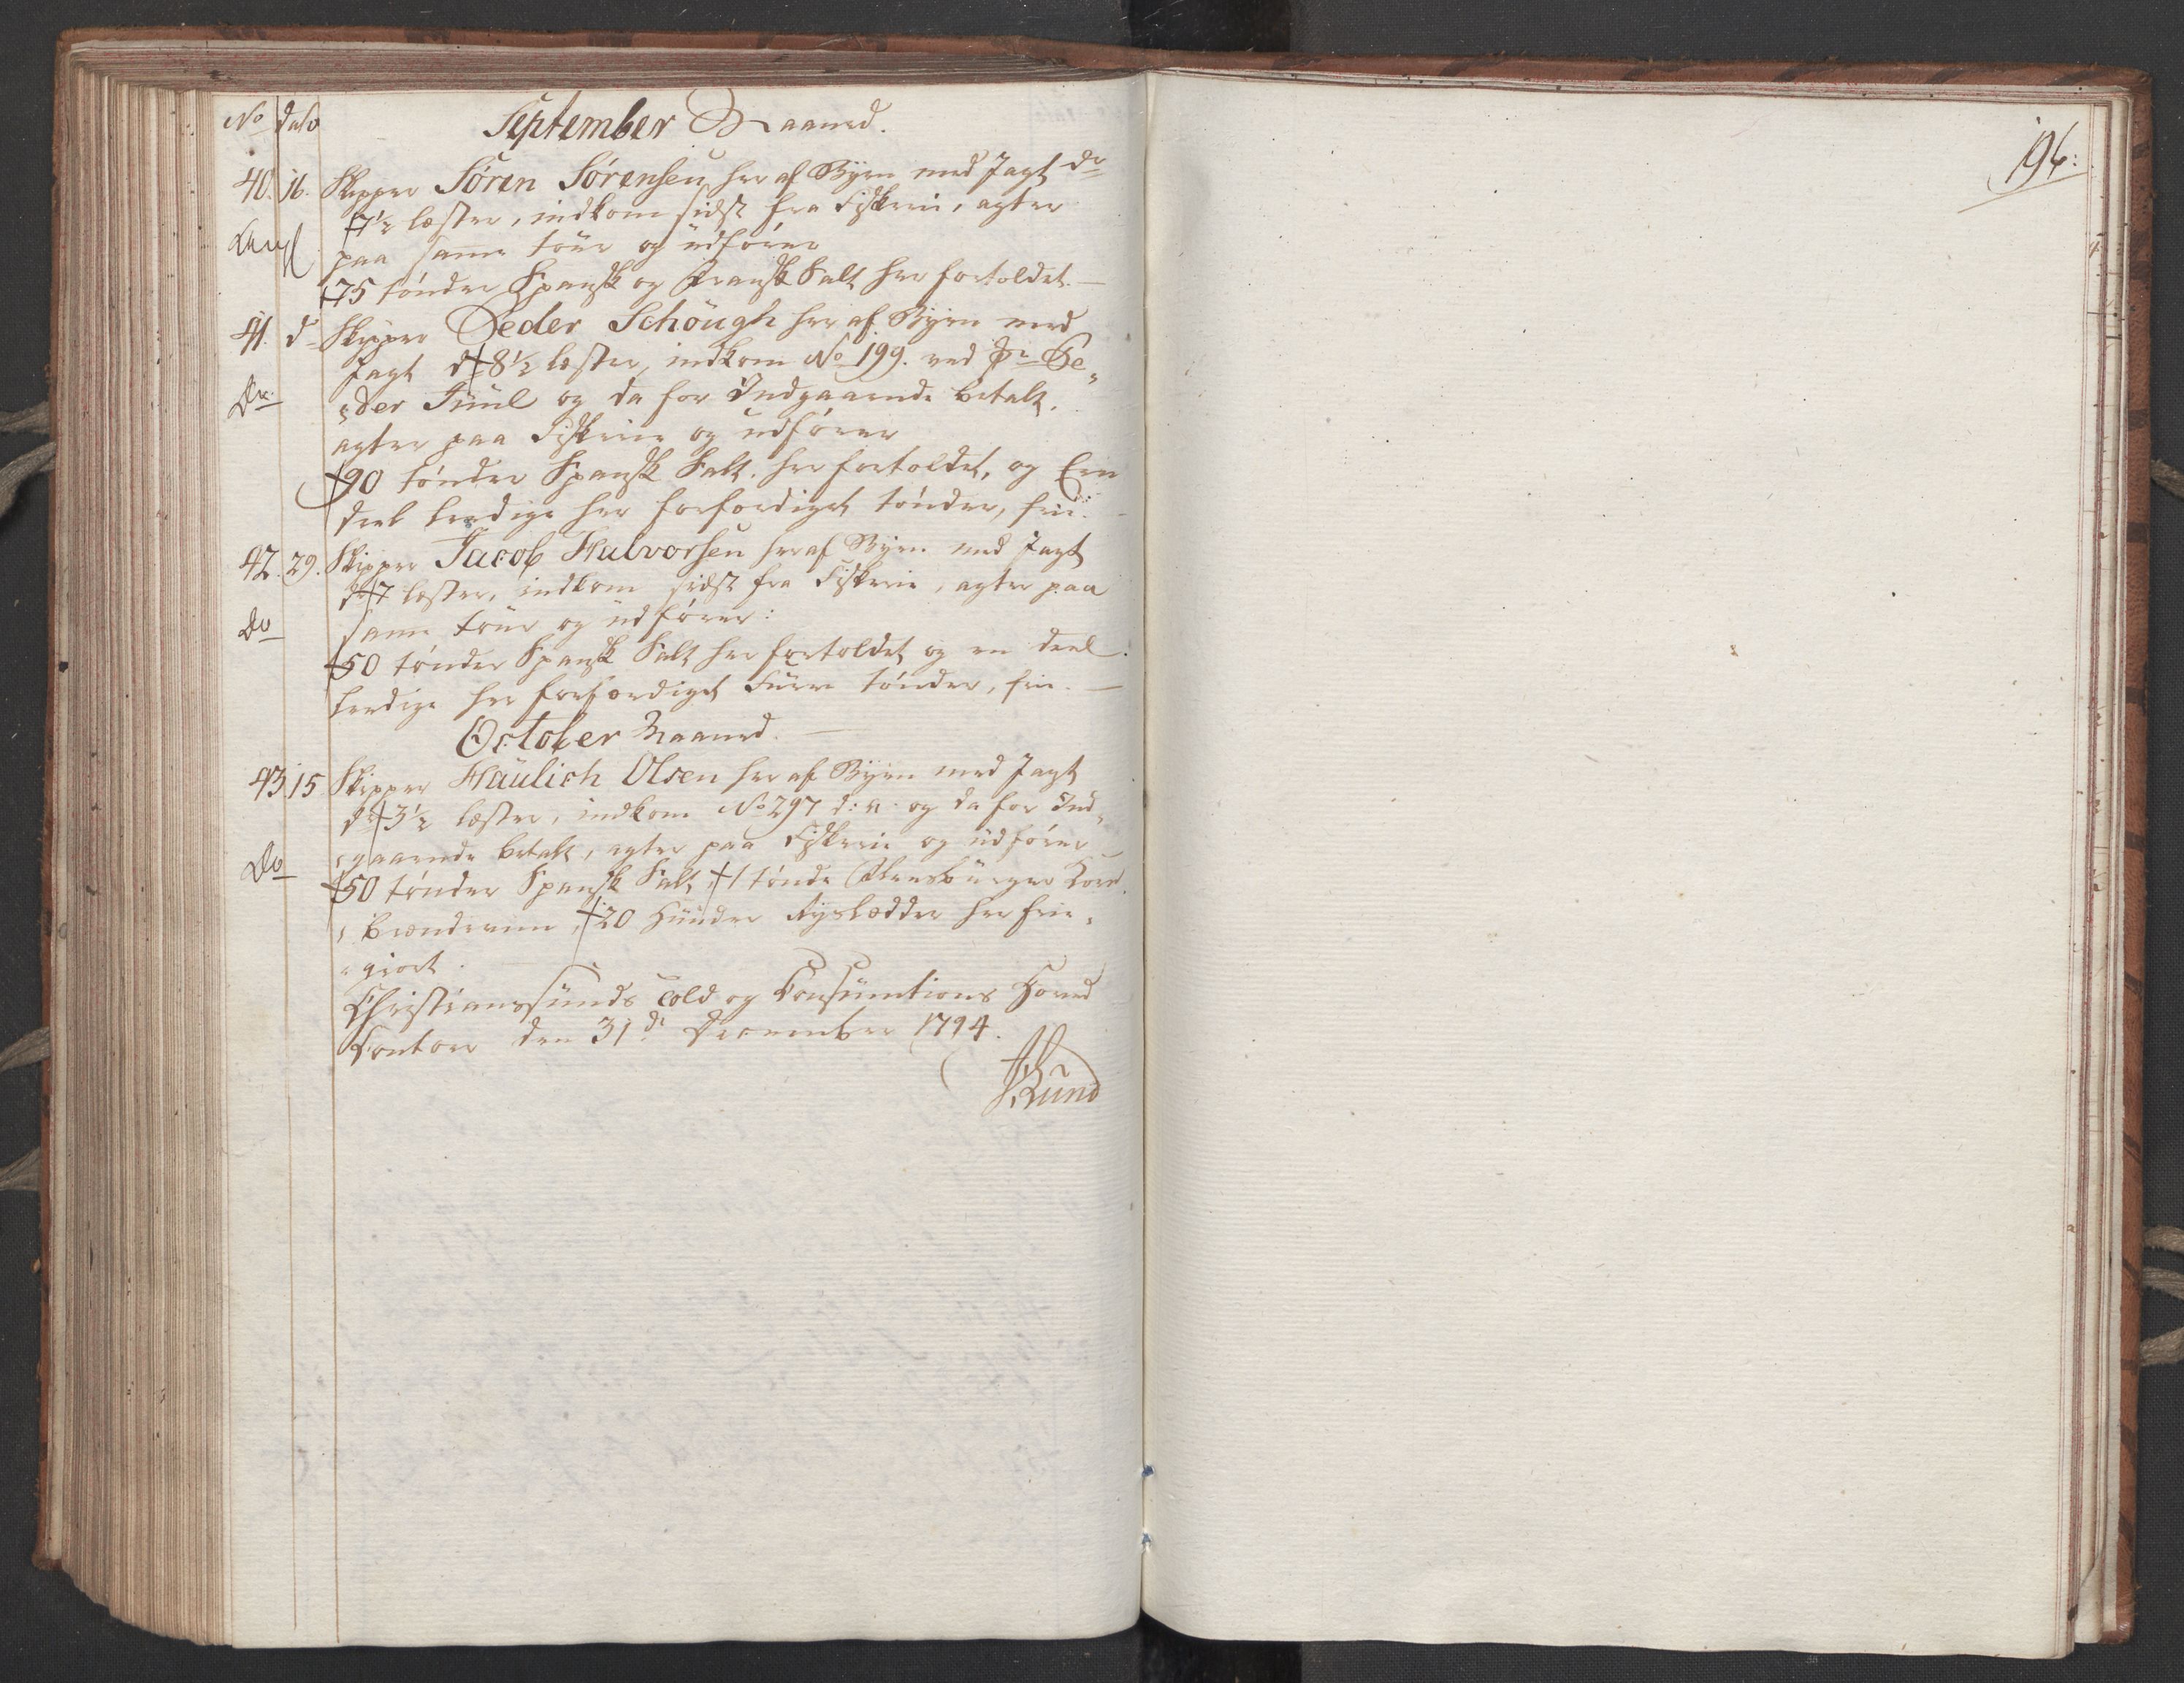 No dato September Maaned.
40. 16. Skipper Søren Sørensen her af Byen med Jagt dr
7½ læster, indkom sidst fra Fiskerie, agter
paa samme tour og udfører
75 tønder Spansk og Fransk Salt her fortoldet. —
41. d Skipper Peder Schough her af Byen med
Jagt dr 8½ læster, indkom No 199. ved Pe„
Do
„der Juul og da for Indgaaende betalt.
agter paa Fiskerie og udfører
90 tønder Spansk Salt. her fortoldet, og Een
deel leedige her forfærdiget tønder, frie. —
42. 29. Skipper Jacob Halvorsen her af Byen med Jagt
dr 7 læster, indkom sidst fra Fiskerie, agter paa
Do samme tour og udfører:
50 tønder Spansk Salt her fortoldet og en deel
leedige her forfærdiget Furre tønder, frie. —
October Maaned. —
43. 15 Skipper Haulich Olsen her af Byen med Jagt
dr 3½ læster, indkom No 297 d: A: og da for Ind„
„gaaende betalt, agter paa Fiskerie og udfører
Do
50 tønder Spansk Salt, 1 tønde Flensburger Korn
„brændeviin, 20 Hunder Ryslædder her frie„
„giort.
Christianssunds Told og Consumtions Hoved
Contoir den 31de December 1794.
Lund
196: